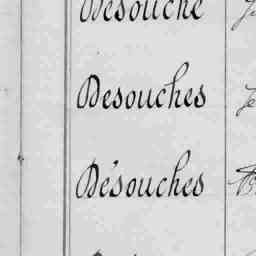 Desouche
Desouches
Désouches